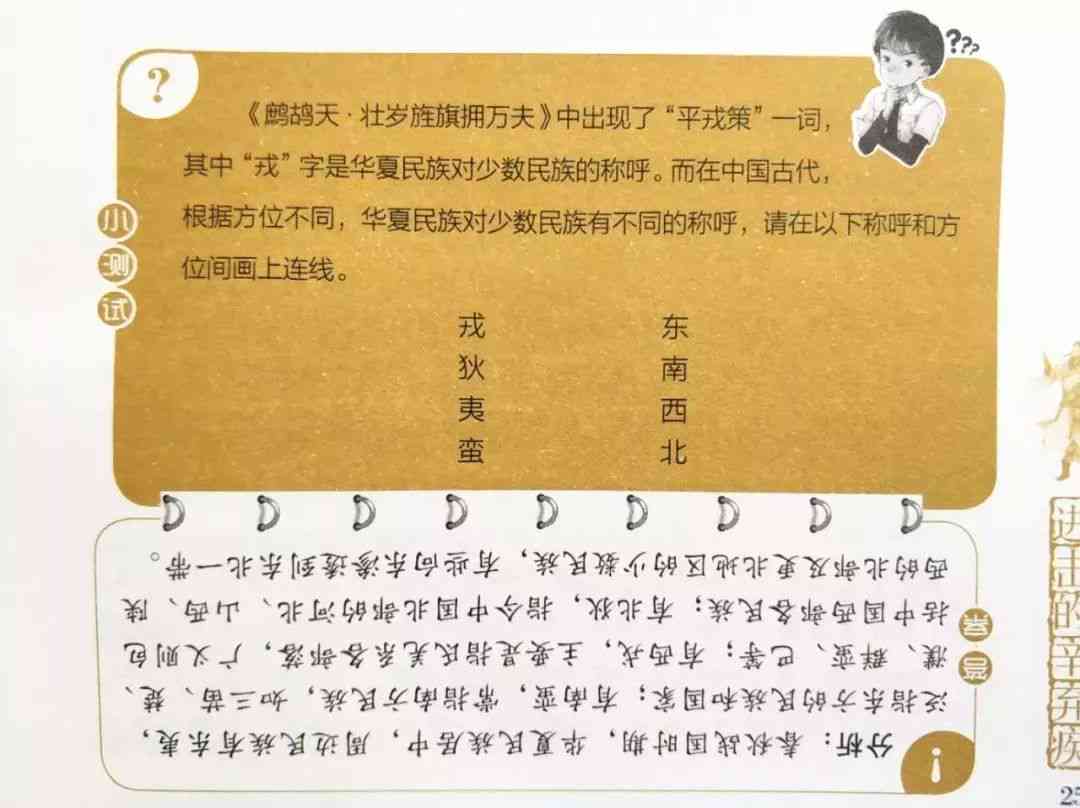 ?
???
《鹧鸪天·壮岁旌旗拥万夫》中出现了“平戎策”一词，
其中“戎”字是华夏民族对少数民族的称呼。而在中国古代，
根据方位不同，华夏民族对少数民族有不同的称呼，请在以下称呼和方
位间画上连线。
小测试
戎 东
狄 南
夷 西
蛮 北
答案
分析：春秋战国时期，华夏民族居中，周边民族有东夷，
泛指东方的民族和国家；有南蛮，常指南方民族，如三苗、楚、
濮、群蛮、巴等；有西戎，主要是指氐羌系各部落，广义则包
括中国西部各民族；有北狄，指今中国北部的河北、山西、陕
西的北部及更北地区的少数民族，有些向东渗透到东北一带。
进击的辛弃疾